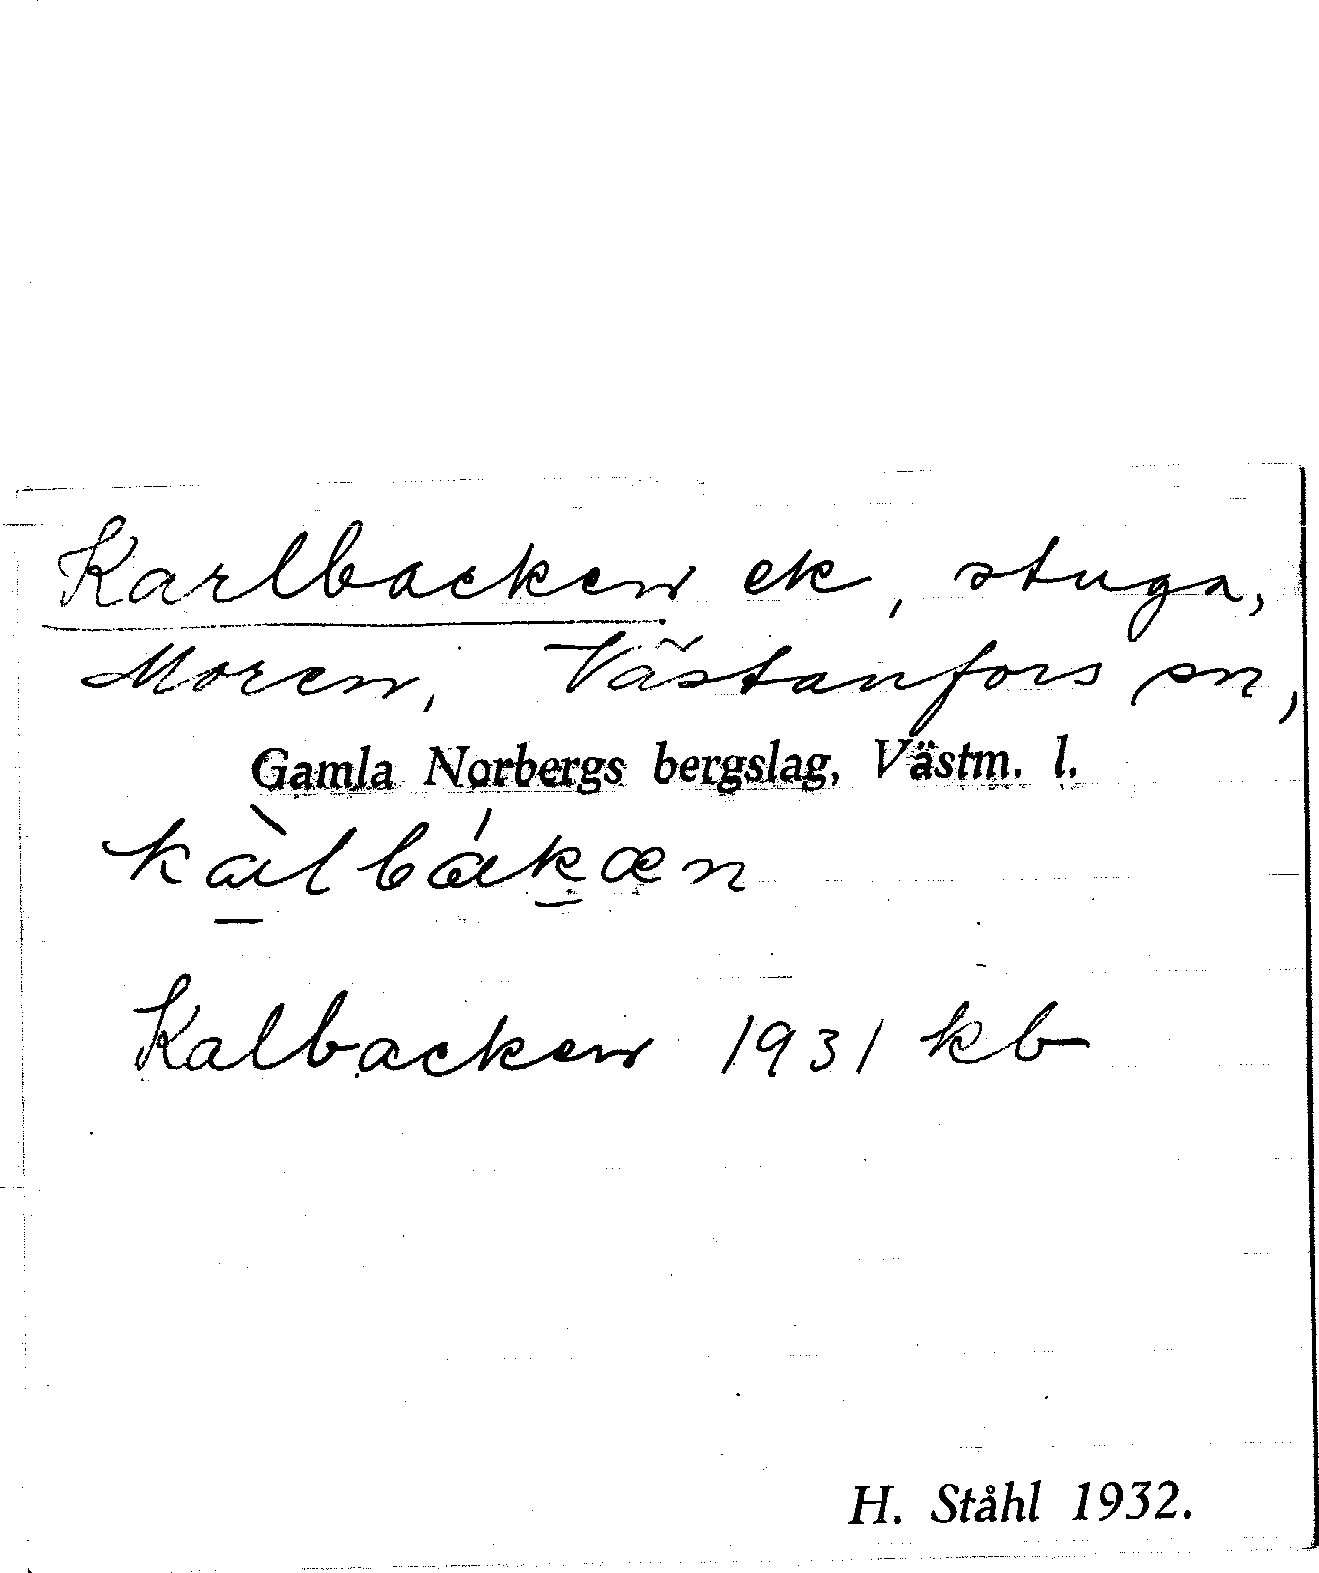 Karlbacken ek, stuga,
Moren, Västanfors sn,
Gamla Norbergs bergslag, Västm. l.
kàlbákæn
Kalbacken 1931 kb
H. Ståhl 1932.